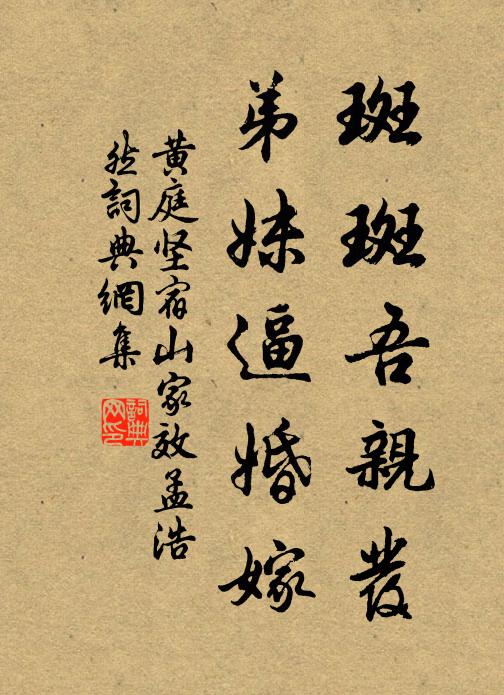 斑斑吾親發
弟妹逼婚嫁
黄庭坚宿山家效孟浩
然詞典網集
詞典网印